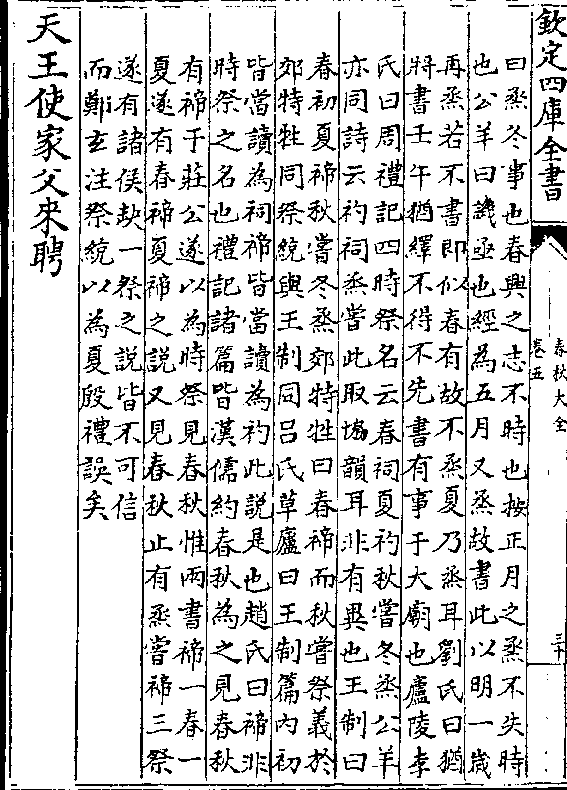 欽定四庫全書
春秋大全
卷五
三十
曰烝冬事也春興之志不時也按正月之烝不失時
也公羊曰譏亟也經為五月又烝故書此以明一歲
再烝若不書即似春有故不烝夏乃烝耳劉氏曰猶
將書壬午猶繹不得不先書有事于大廟也廬陵李
氏曰周禮記四時祭名云春祠夏礿秋嘗冬烝公羊
亦同詩云礿祠烝嘗此取協韻耳非有異也王制曰
春礿夏禘秋嘗冬烝郊特牲曰春禘而秋嘗祭義於
郊特牲同祭統與王制同呂氏草廬曰王制篇內礿
皆當讀為祠禘皆當讀為礿此說是也趙氏曰禘非
時祭之名也禮記諸篇皆漢儒約春秋為之見春秋
有禘于莊公遂以為時祭見春秋惟兩書禘一春一
夏遂有春禘夏禘之說又見春秋止有烝嘗禘三祭
遂有諸侯缺一祭之說皆不可信
而鄭玄注祭統以為夏殷禮誤矣
天王使家父來聘